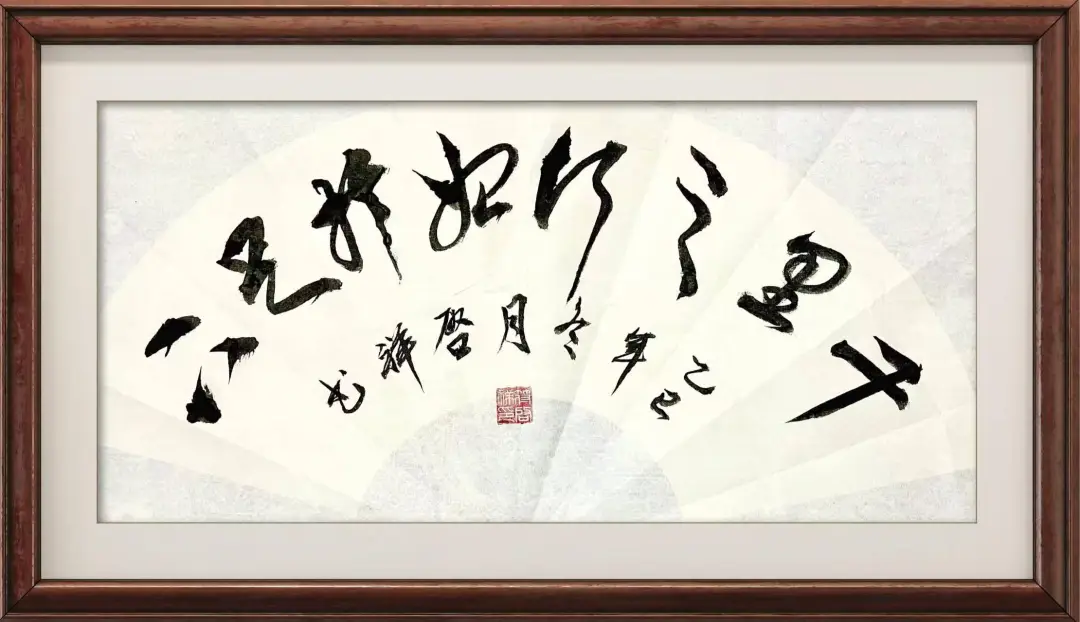 千里之行始於足下
己巳年冬月啓祥书